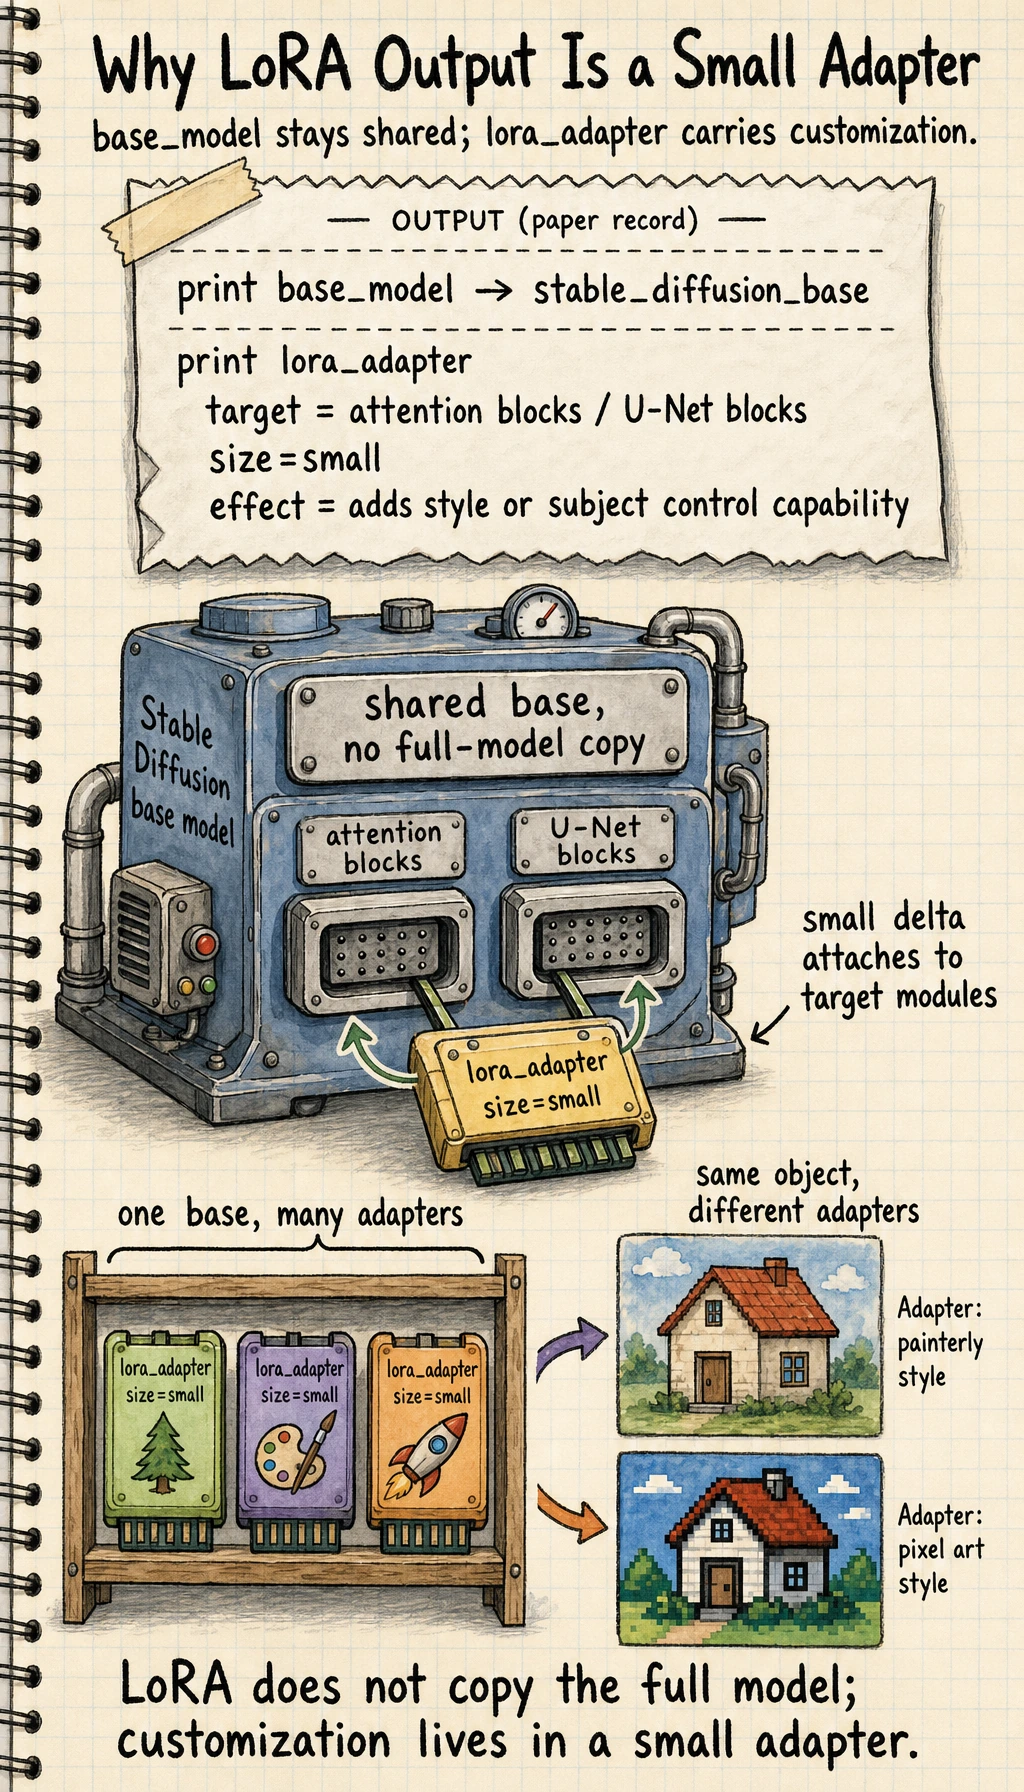 Why LoRA Output Is a Small Adapter
base_model stays shared; lora_adapter carries customization.
— OUTPUT (paper record) —
print base_model → stable_diffusion_base
print lora_adapter
target = attention blocks / U-Net blocks
size=small
effect = adds style or subject control capability
Stable
Diffusion
base model
shared base,
no full-model copy
attention
blocks
U-Net
blocks
small delta
attaches to
target modules
lora_adapter
size=small
one base, many adapters
lora_adapter
size=small
lora_adapter
size=small
lora_adapter
size=small
same object,
different adapters
Adapter:
painterly
style
Adapter:
pixel art
style
LoRA does not copy the full model;
customization lives in a small adapter.